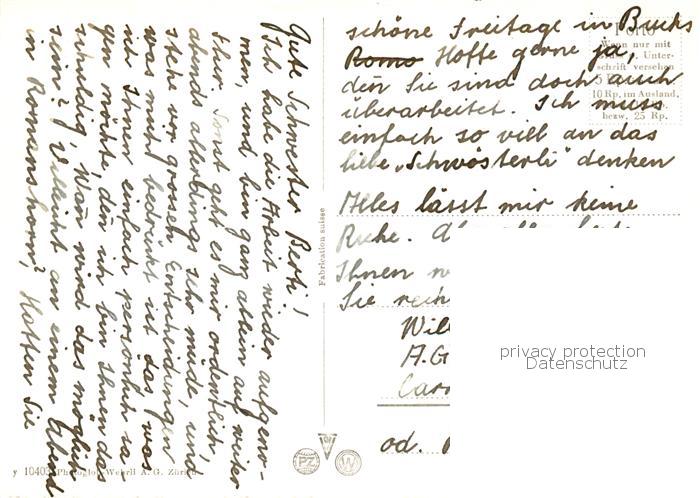 Gute Schwester Berti!
Ich habe die Arbeit wieder aufgenom-
men, und bin ganz allein auf weiter
Flur. Sonst geht es mir ordentlich,
abends allerdings sehr müde, und
stehe vor grossen Entscheidungen
was mich bedrückt ist das, was
ich Ihnen einfach persönlich sa-
gen möchte, den ich bin Ihnen das
schuldig, Wan wird das möglich
sein? Villeicht an einem Abend
in Romanshorn? Hatten Sie
schöne Freitage in Buchs
Roms Hoffe gerne ja,
den Sie sind doch auch
überarbeitet. Ich muss
einfach so vill an das
liebe "Schwösterli" denken
Alles lässt mir keine
Ruhe.
Ihnen
Sie
od.
Porto
Wenn nur mit
Unter-
schrift versehen
10 Rp. im Ausland,
bezw. 25 Rp.
Fabrication suisse
y 10403 Photoglob-Wehrli A. G. Zürich
PZ
W
privacy protection
Datenschutz